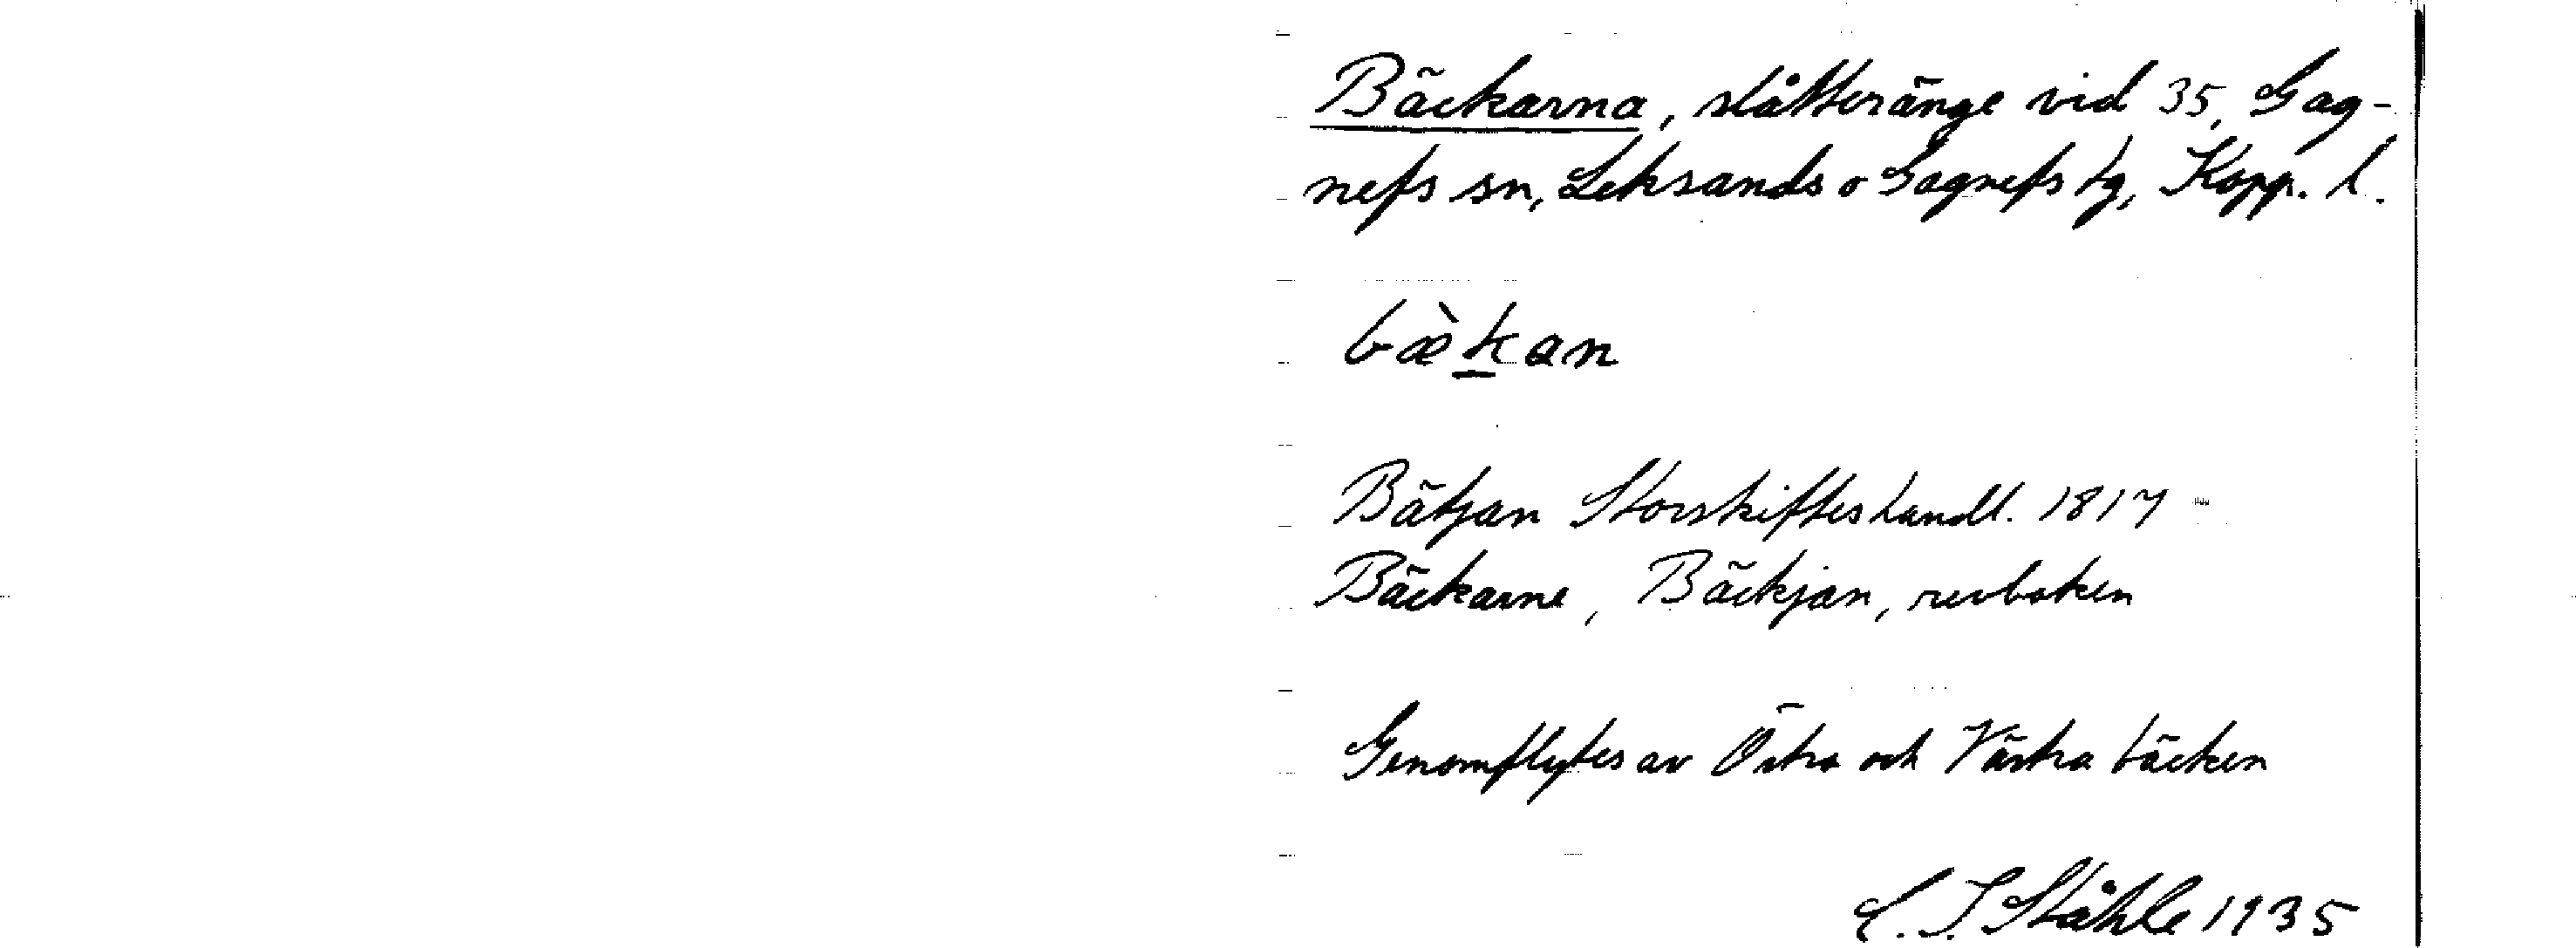 Bäckarna, slåtteränge vid 35, Gag-
nefs sn, Leksands o Gagnefs tg, Kopp. l.
bæ̀k̲an
Bätjan Storskifteshandl. 1817
Bäckarne, Bäckjan, revboken
Genomflytes av Östra och Västra bäcken
C. I. Ståhle 1935